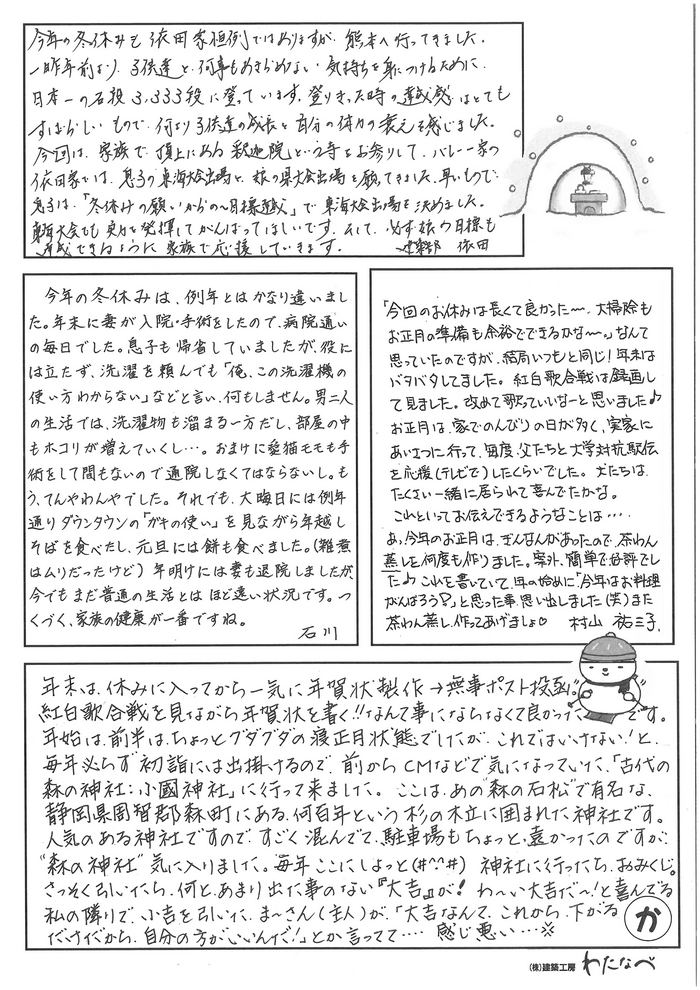 今年の冬休みも依田家恒例ではありますが、熊本へ行ってきました。
一昨年前より、子供達と、何事もあきらめない気持ちを身につけるために、
日本一の石段3,333段に登っています。登りきった時の達成感はとても
すばらしいもので、何より子供達の成長と自分の体力の衰えを感じました。
今回は、家族で、頂上にある釈迦院という寺をお参りして、バレー一家の
依田家では、息子の東海大会出場と、娘の県大会出場を願ってきました。早いもので
息子は、「冬休みの願いからの〜目標達成」で東海大会出場を決めました。
東海大会でも実力を発揮してがんばってほしいです。そして、必ず娘の目標も
達成できるように家族で応援していきます。 建築部 依田
今年の冬休みは、例年とはかなり違いまし
た。年末に妻が入院・手術をしたので、病院通い
の毎日でした。息子も帰省していましたが、役に
は立たず、洗濯を頼んでも「俺、この洗濯機の
使い方わからない」などと言い、何もしません。男二人
の生活では、洗濯物も溜まる一方だし、部屋の中
もホコリが増えていくし…。おまけに愛猫モモも手
術をして間もないので通院しなくてはならないし。も
う、てんやわんやでした。それでも、大晦日には例年
通りダウンタウンの「ガキの使い」を見ながら年越し
そばを食べたし、元旦には餅も食べました。(雑煮
はムリだったけど) 年明けには妻も退院しましたが、
今でもまだ普通の生活とはほど遠い状況です。つ
くづく、家族の健康が一番ですね。
石川
「今回のお休みは長くて良かった〜、大掃除も
お正月の準備も余裕でできるかな〜。」なんて
思っていたのですが、結局いつもと同じ!年末は
バタバタしてました。紅白歌合戦は録画し
て見ました。改めて歌っていいなーと思いました♪
お正月は、家でのんびりの日が多く、実家に
あいさつに行って、毎度、父たちと大学対抗駅伝
を応援(テレビで)したくらいでした。犬たちは、
たくさい一緒に居られて喜んでたかな。
これといってお伝えできるようなことは・・・・
あ、今年のお正月は、ぎんなんがあったので、茶わん
蒸しを何度も作りました。案外、簡単で好評でし
た♪ これを書いていて、年の始めに「今年はお料理
がんばろう?」と思った事、思い出しました(笑)また
茶わん蒸し、作ってあげましょ♡ 村山 祐三子
年末は、休みに入ってから一気に年賀状製作→無事ポスト投函。
紅白歌合戦を見ながら年賀状を書く!!なんて事にならなくて良かった です。
年始は、前半は、ちょっとグダグダの寝正月状態でしたが、これではいけない!と、
毎年必らず初詣には出掛けるので、前からCMなどで気になっていた、「古代の
森の神社:小國神社」に行って来ました。ここは、あの“森の石松”で有名な、
静岡県周智郡森町にある、何百年という杉の木立に囲まれた神社です。
人気のある神社ですので、すごく混んでて、駐車場もちょっと、遠かったのですが、
“森の神社”気に入りました。毎年ここにしよっと(#^^#) 神社に行ったら、おみくじ。
さっそく引いたら、何と、あまり出た事のない『大吉』が! わ〜い大吉だ〜!と喜んでる
私の隣りで、小吉を引いた、ま〜さん(主人)が、「大吉なんて、これから、下がる
だけだから、自分の方がいいんだ!」とか言ってて‥‥ 感じ悪い…
か
(株)建築工房 わたなべ